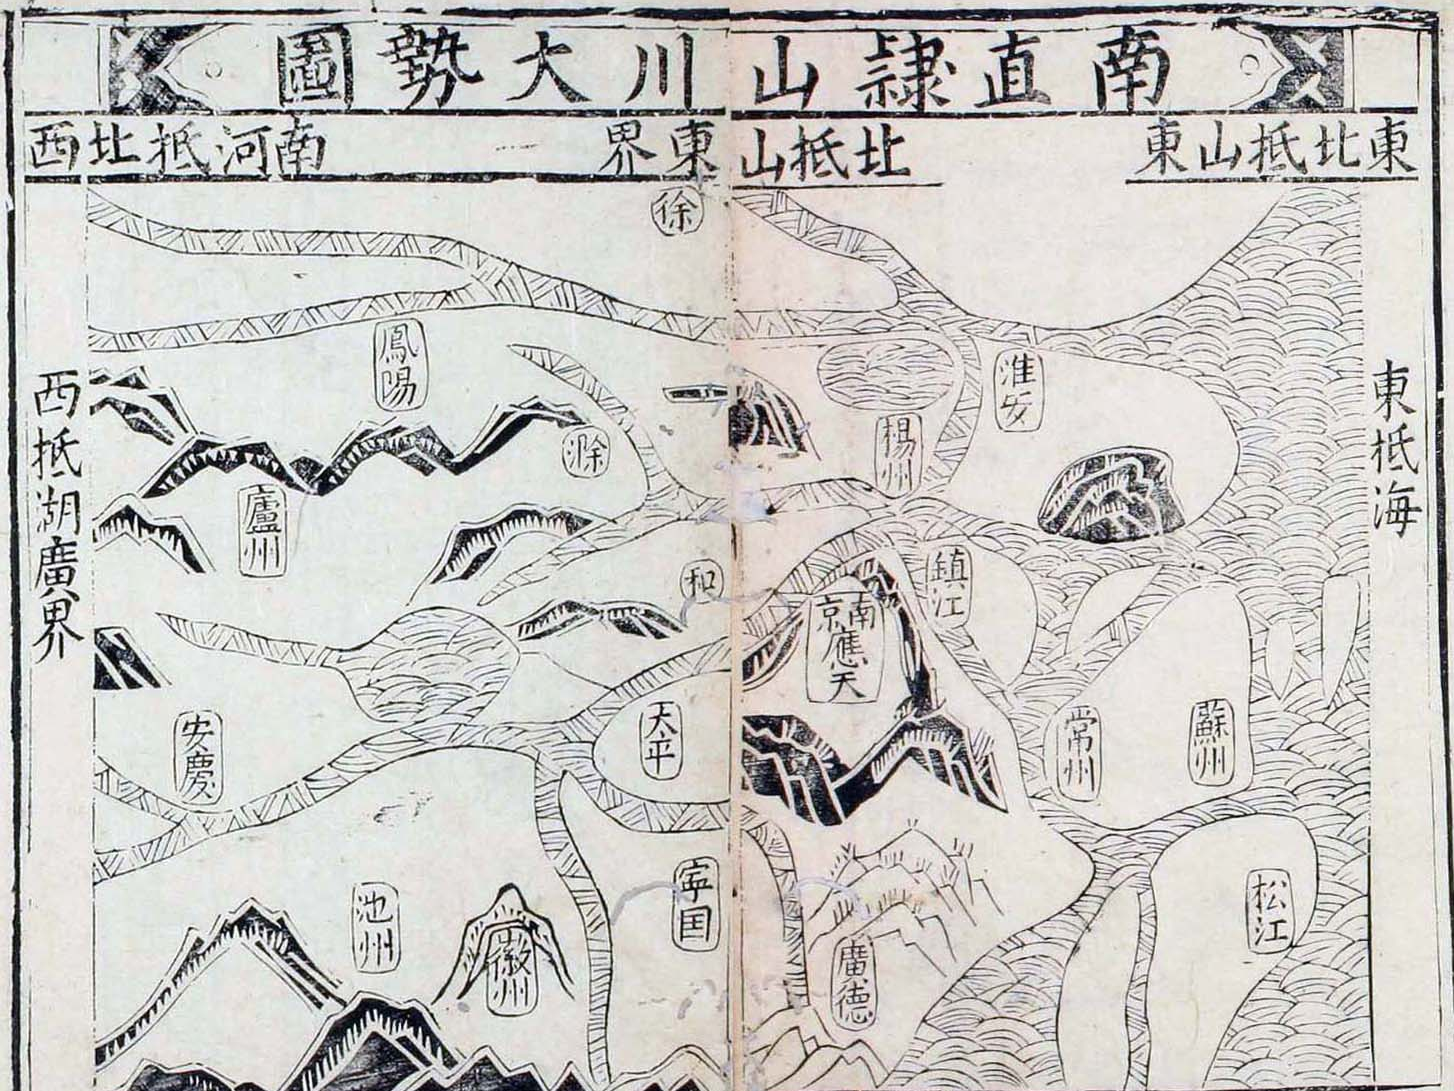 南直隷山川大勢圖
東北抵山東
北抵山東界
西北抵河南
東抵海
西抵湖廣界
徐
鳳陽
淮安
滁
揚州
廬州
和
鎮江
南京應天
安慶
太平
常州
蘇州
池州
徽州
寧国
廣德
松江